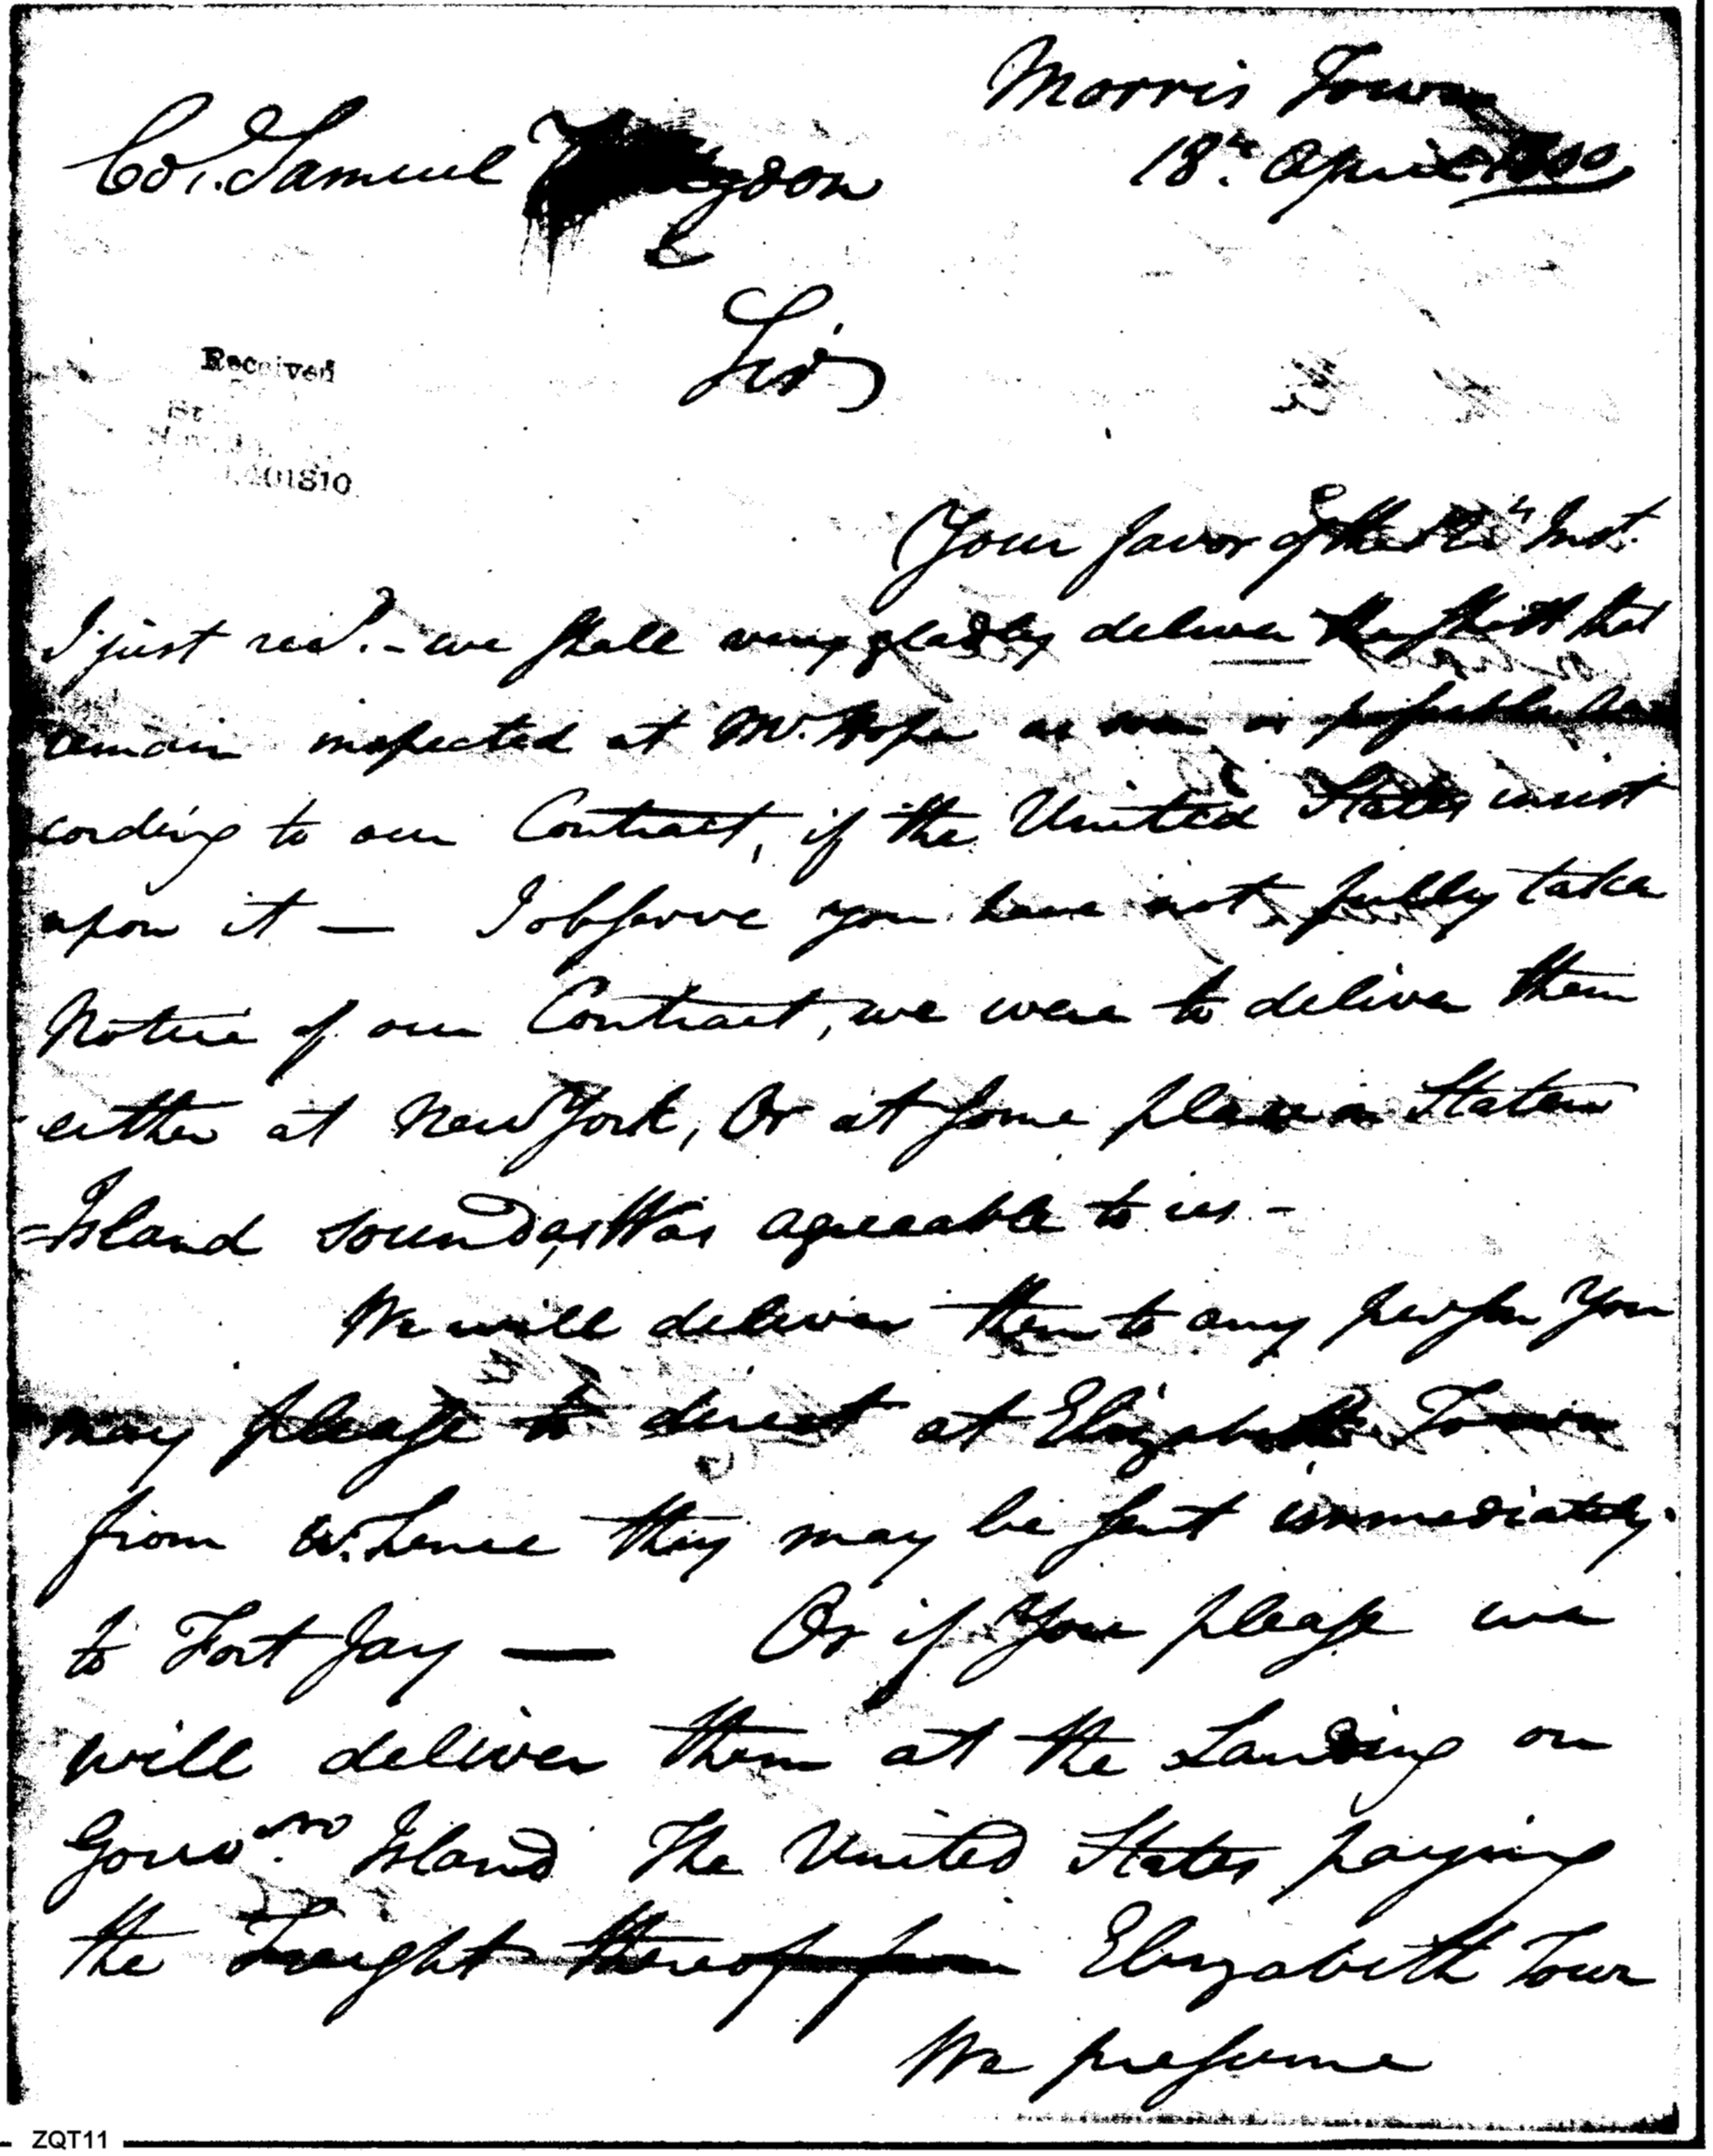 Morris Town
18th April 1800
Col. Samuel Hodgdon
Sir
Received
401810
Your favor of the Inst.
I just recd. - we shall very gladly deliver the shott that
remain inspected at Mt. Hope as soon as possible Ac
cording to our Contract, if the United States insist
upon it — I observe you have not fully taken
Notice of our Contract, we were to deliver them
either at New York, Or at some place on Staten
=Island sound, as Was agreeable to us -
We will deliver them to any person You
may please to direct at Elizabeth Town
from whence they may be sent immediately
to Fort Jay — Or if You please we
will deliver them at the Landing on
Island The United States paying
the Freight thereof from Elizabeth Town
We presume
ZQT11